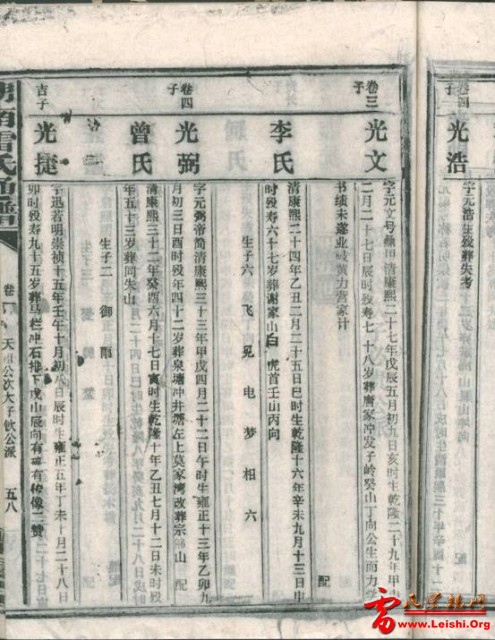 卷四
子
光浩
字元浩生殁葬失考
卷三
子
光文
字元文号 清康熙二十七年戊辰五月初九日亥时生乾隆二十九年甲
二月二十七日辰时殁寿七十八岁葬唐家冲发子岭癸山丁向公生而力学
书绩未遂业 黄力营家计
配
李氏
清康熙二十四年乙丑二月二十五日巳时生乾隆十六年辛未九月十三日申
时殁寿六十七岁葬谢家山白虎首壬山丙向
生子六 飞 见 电 梦 相 六
卷四
子
光弼
字元弼帝简清康熙三十三年甲戌四月二十二日午时生雍正十三年乙卯九
月初三日酉时殁年四十二岁葬泉塘冲井塘左上莫家湾改葬宗 山 配
曾氏
清康熙三十二年癸酉六月十七日寅时生乾隆十年乙丑七月十二日未时殁
年五十三岁葬同失山
生子二 御
吉子
光捷
字迅若明崇祯十五年壬午十月初 日辰时生雍正五年丁未十月二十八日
卯时殁寿九十五岁葬马栏冲石排下戌山辰向有碑有 像二赞
氏 谱
卷
天 公次大子钦公派
五八
雷氏宗亲网
www.Leishi.Org